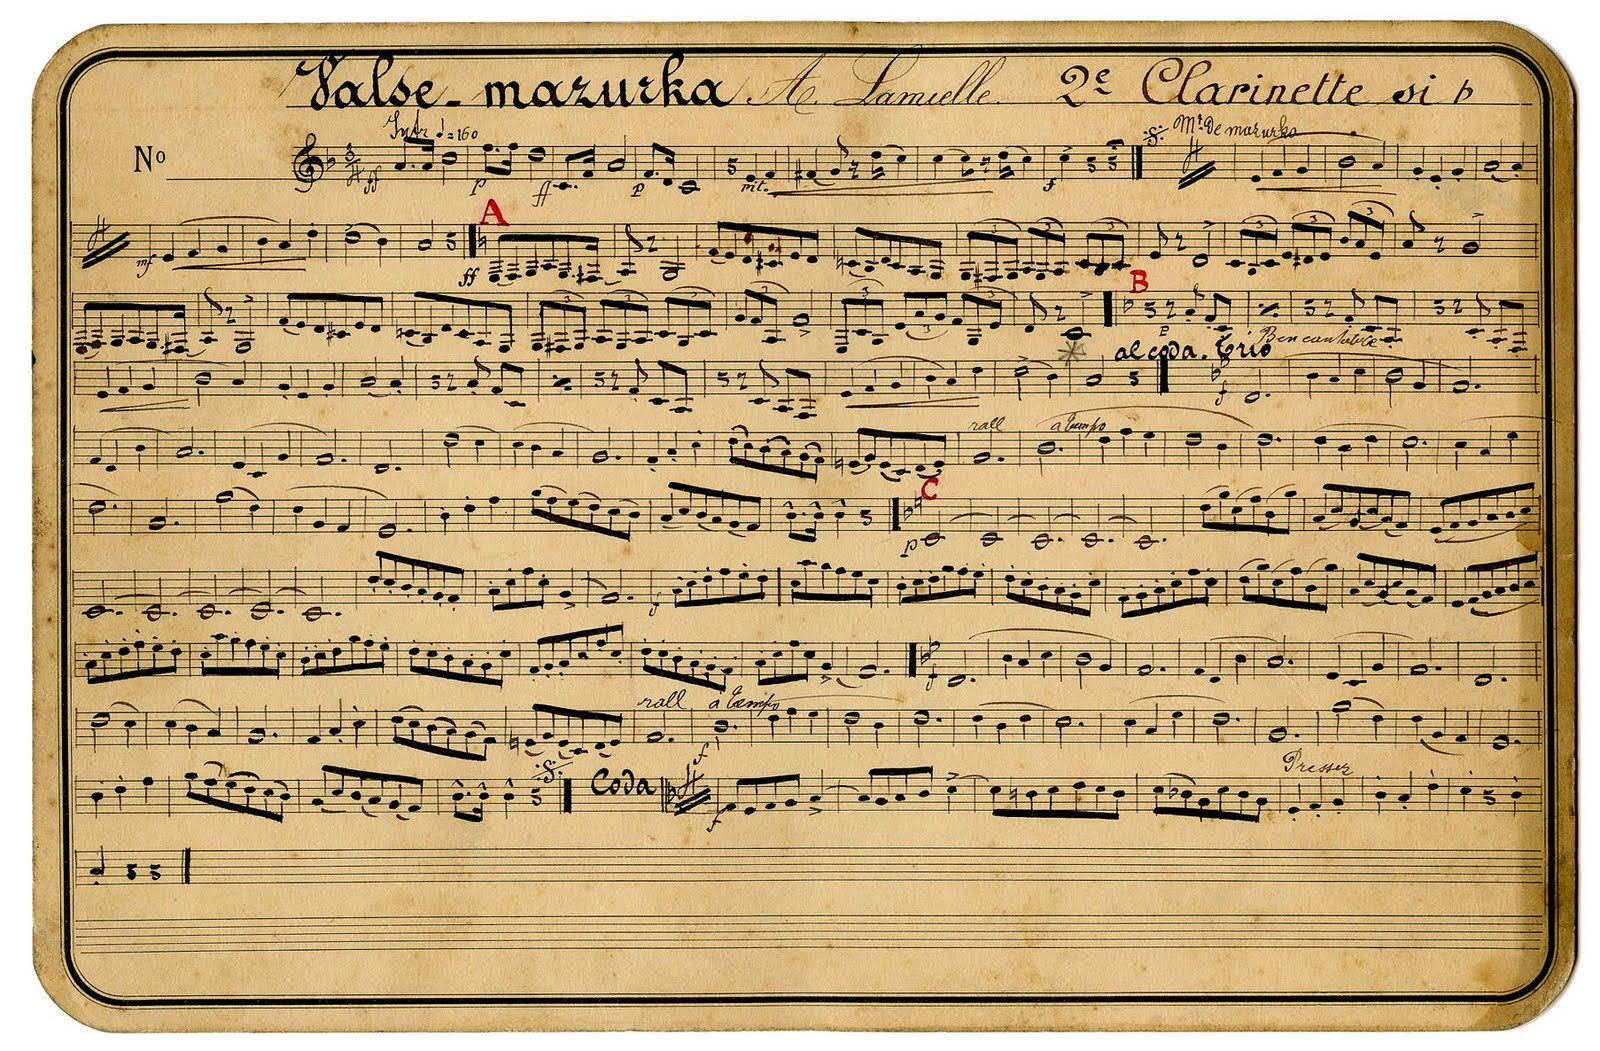 Valse - mazurka A. Lamielle. 2e Clarinette si b
No
Intr = 160
Mt De mazurka
ff p ff p mf. f
A
mf ff
B
p
al coda. Trio Ben cantabile
f
rall a tempo
C
p
f
f
rall a tempo
f
Presser
Coda
f